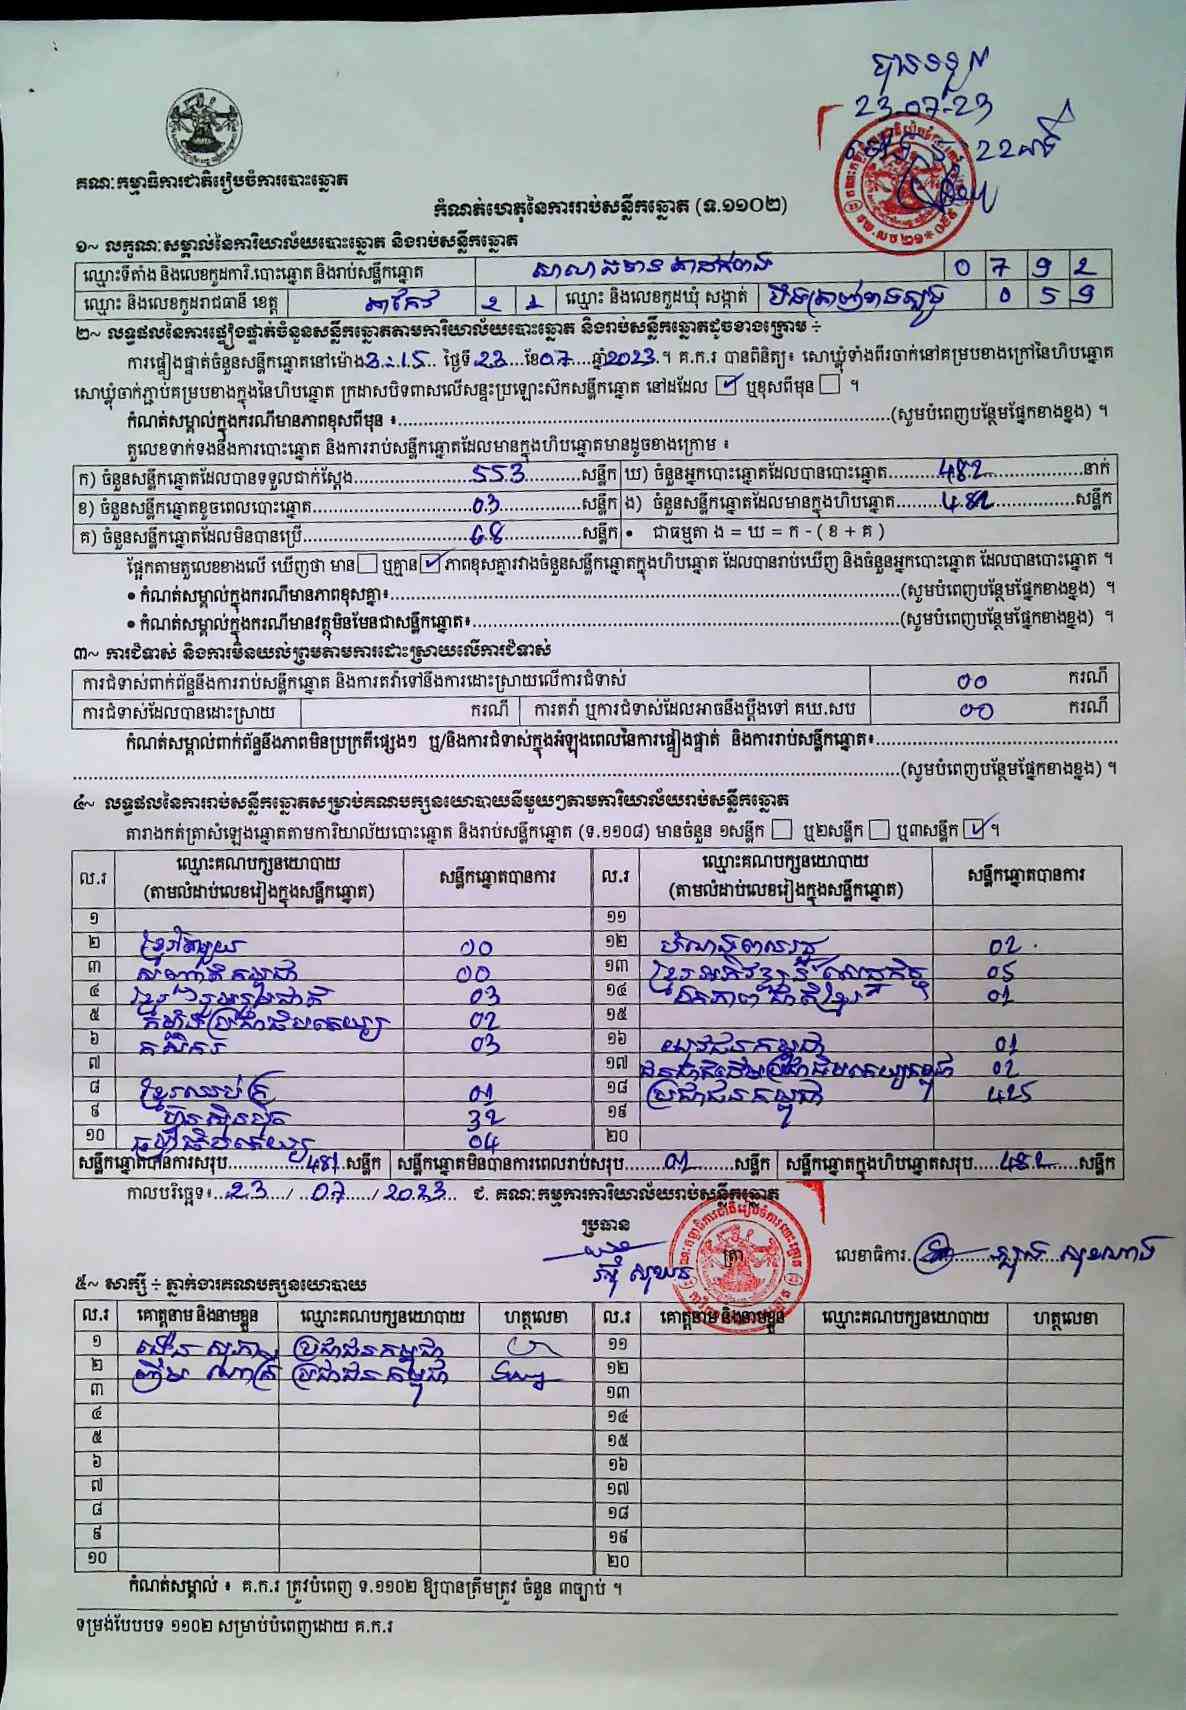 បានទទួល
23-07-23
22នាទី
គណៈកម្មាធិការជាតិរៀបចំការបោះឆ្នោត
កំណត់ហេតុនៃការរាប់សន្លឹកឆ្នោត (ទ.១១០២)
១~ លក្ខណៈសម្គាល់នៃការិយាល័យបោះឆ្នោត និងរាប់សន្លឹកឆ្នោត
ឈ្មោះទីតាំង និងលេខកូដការិ.បោះឆ្នោត និងរាប់សន្លឹកឆ្នោត 0 7 9 2
ឈ្មោះ និងលេខកូដរាជធានី ខេត្ត តាកែវ 2 1 ឈ្មោះ និងលេខកូដឃុំ សង្កាត់ 0 5 9
២~ លទ្ធផលនៃការផ្ទៀងផ្ទាត់ចំនួនសន្លឹកឆ្នោតតាមការិយាល័យបោះឆ្នោត និងរាប់សន្លឹកឆ្នោតដូចខាងក្រោម ÷
ការផ្ទៀងផ្ទាត់ចំនួនសន្លឹកឆ្នោតនៅម៉ោង 3:15 ថ្ងៃទី 23 ខែ 07 ឆ្នាំ 2023 ។ គ.ក.រ បានពិនិត្យ៖ សោឃ្លុំទាំងពីរចាក់នៅគម្របខាងក្រៅនៃហិបឆ្នោត
សោឃ្លុំចាក់ភ្ជាប់គម្របខាងក្នុងនៃហិបឆ្នោត ក្រដាសបិទពាសលើសន្ទះប្រឡោះស៊កសន្លឹកឆ្នោត នៅដដែល ☑ ឬខុសពីមុន ☐ ។
កំណត់សម្គាល់ក្នុងករណីមានភាពខុសពីមុន ៖..........(សូមបំពេញបន្ថែមផ្នែកខាងខ្នង) ។
តួលេខទាក់ទងនឹងការបោះឆ្នោត និងការរាប់សន្លឹកឆ្នោតដែលមានក្នុងហិបឆ្នោតមានដូចខាងក្រោម ៖
ក) ចំនួនសន្លឹកឆ្នោតដែលបានទទួលជាក់ស្តែង.....553.....សន្លឹក ឃ) ចំនួនអ្នកបោះឆ្នោតដែលបានបោះឆ្នោត.....482.....នាក់
ខ) ចំនួនសន្លឹកឆ្នោតខូចពេលបោះឆ្នោត.....03.....សន្លឹក ង) ចំនួនសន្លឹកឆ្នោតដែលមានក្នុងហិបឆ្នោត.....482.....សន្លឹក
គ) ចំនួនសន្លឹកឆ្នោតដែលមិនបានប្រើ.....68.....សន្លឹក • ជាធម្មតា ង = ឃ = ក - ( ខ + គ )
ផ្អែកតាមតួលេខខាងលើ ឃើញថា មាន ☐ ឬគ្មាន ☑ ភាពខុសគ្នារវាងចំនួនសន្លឹកឆ្នោតក្នុងហិបឆ្នោត ដែលបានរាប់ឃើញ និងចំនួនអ្នកបោះឆ្នោត ដែលបានបោះឆ្នោត ។
• កំណត់សម្គាល់ក្នុងករណីមានភាពខុសគ្នា៖..........(សូមបំពេញបន្ថែមផ្នែកខាងខ្នង) ។
• កំណត់សម្គាល់ក្នុងករណីមានវត្ថុមិនមែនជាសន្លឹកឆ្នោត៖..........(សូមបំពេញបន្ថែមផ្នែកខាងខ្នង) ។
៣~ ការជំទាស់ និងការមិនយល់ព្រមតាមការដោះស្រាយលើការជំទាស់
ការជំទាស់ពាក់ព័ន្ធនឹងការរាប់សន្លឹកឆ្នោត និងការតវ៉ាទៅនឹងការដោះស្រាយលើការជំទាស់ 00 ករណី
ការជំទាស់ដែលបានដោះស្រាយ ករណី ការតវ៉ា ឬការជំទាស់ដែលអាចនឹងប្តឹងទៅ គឃ.សប 00 ករណី
កំណត់សម្គាល់ពាក់ព័ន្ធនឹងភាពមិនប្រក្រតីផ្សេងៗ ឬ/និងការជំទាស់ក្នុងអំឡុងពេលនៃការផ្ទៀងផ្ទាត់ និងការរាប់សន្លឹកឆ្នោត៖..........
..........(សូមបំពេញបន្ថែមផ្នែកខាងខ្នង) ។
៤~ លទ្ធផលនៃការរាប់សន្លឹកឆ្នោតសម្រាប់គណបក្សនយោបាយនីមួយៗតាមការិយាល័យរាប់សន្លឹកឆ្នោត
តារាងកត់ត្រាសំឡេងឆ្នោតតាមការិយាល័យបោះឆ្នោត និងរាប់សន្លឹកឆ្នោត (ទ.១១០៨) មានចំនួន ១សន្លឹក ☐ ឬ២សន្លឹក ☐ ឬ៣សន្លឹក ☑ ។
ល.រ ឈ្មោះគណបក្សនយោបាយ (តាមលំដាប់លេខរៀងក្នុងសន្លឹកឆ្នោត) សន្លឹកឆ្នោតបានការ ល.រ ឈ្មោះគណបក្សនយោបាយ (តាមលំដាប់លេខរៀងក្នុងសន្លឹកឆ្នោត) សន្លឹកឆ្នោតបានការ
១ ១១
២ ខ្មែរតែមួយ 00 ១២ 02
៣ សញ្ជាតិកម្ពុជា 00 ១៣ ខ្មែរអភិវឌ្ឍន៍សេដ្ឋកិច្ច 05
៤ ខ្មែររួបរួមជាតិ 03 ១៤ ឯកភាពជាតិខ្មែរ 01
៥ កម្លាំងប្រជាធិបតេយ្យ 02 ១៥
៦ កសិករ 03 ១៦ យុវជនកម្ពុជា 01
៧ ១៧ ជនជាតិដើមប្រជាធិបតេយ្យកម្ពុជា 02
៨ ខ្មែរឈប់ក្រ 01 ១៨ ប្រជាជនកម្ពុជា 425
៩ ហ៊្វុនស៊ិនប៉ិច 32 ១៩
១០ ធម្មាធិបតេយ្យ 04 ២០
សន្លឹកឆ្នោតបានការសរុប.....481.....សន្លឹក សន្លឹកឆ្នោតមិនបានការពេលរាប់សរុប.....01.....សន្លឹក សន្លឹកឆ្នោតក្នុងហិបឆ្នោតសរុប.....482.....សន្លឹក
កាលបរិច្ឆេទ៖ 23 / 07 / 2023 ជ. គណៈកម្មការការិយាល័យរាប់សន្លឹកឆ្នោត
ប្រធាន ត្រា លេខាធិការ
៥~ សាក្សី ÷ ភ្នាក់ងារគណបក្សនយោបាយ
ល.រ គោត្តនាម និងនាមខ្លួន ឈ្មោះគណបក្សនយោបាយ ហត្ថលេខា ល.រ គោត្តនាម និងនាមខ្លួន ឈ្មោះគណបក្សនយោបាយ ហត្ថលេខា
១ ប្រជាជនកម្ពុជា ១១
២ ប្រជាជនកម្ពុជា ១២
៣ ១៣
៤ ១៤
៥ ១៥
៦ ១៦
៧ ១៧
៨ ១៨
៩ ១៩
១០ ២០
កំណត់សម្គាល់ ៖ គ.ក.រ ត្រូវបំពេញ ទ.១១០២ ឱ្យបានត្រឹមត្រូវ ចំនួន ៣ច្បាប់ ។
ទម្រង់បែបបទ ១១០២ សម្រាប់បំពេញដោយ គ.ក.រ